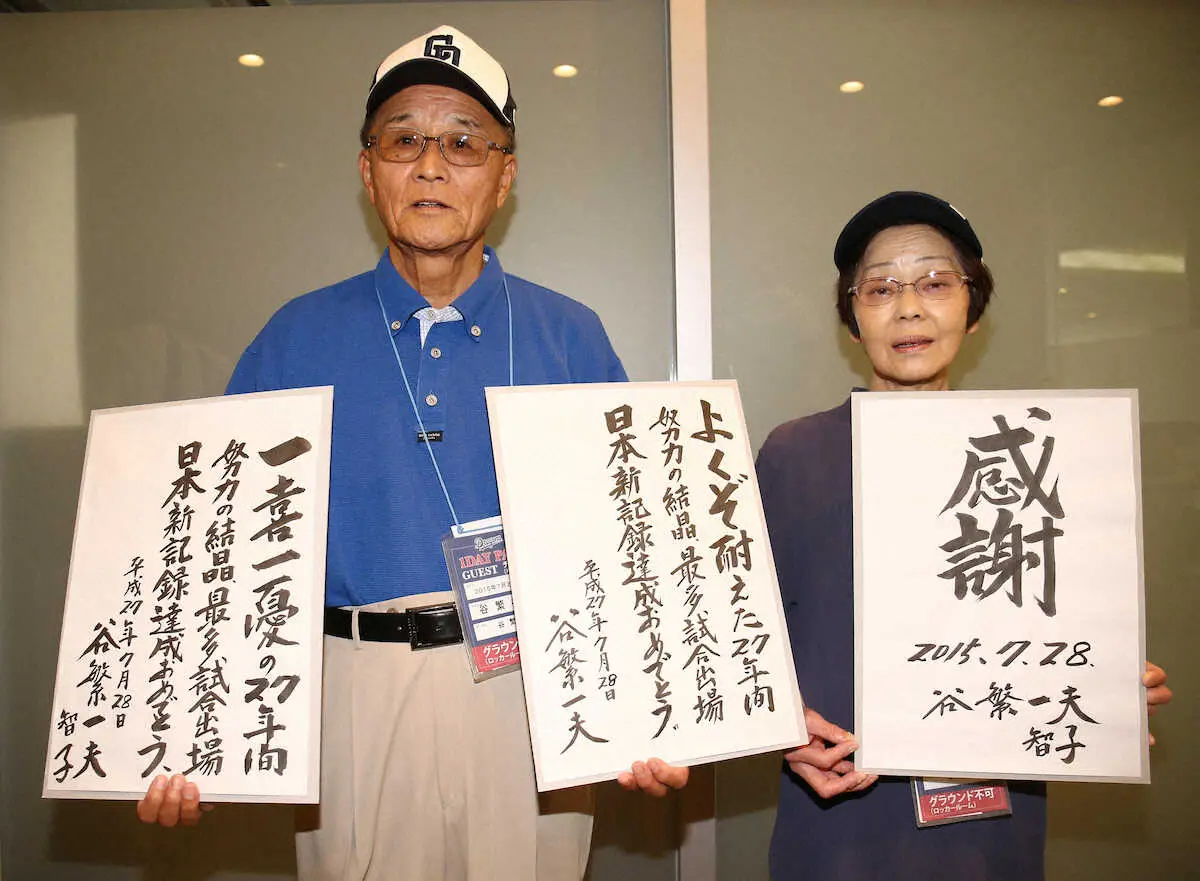 CD
一喜一憂の27年間
努力の結晶 最多試合出場
日本新記録達成おめでとう。
平成27年7月28日
谷繁一夫
智子
よくぞ耐えた27年間
努力の結晶 最多試合出場
日本新記録達成おめでとう。
平成27年7月28日
谷繁一夫
感謝
2015.7.28.
谷繁一夫
智子
1DAY PA
GUEST
2015年7月2
谷繁
谷繁
グラウンド
(ロッカールーム)
グラウンド不可
(ロッカールーム)